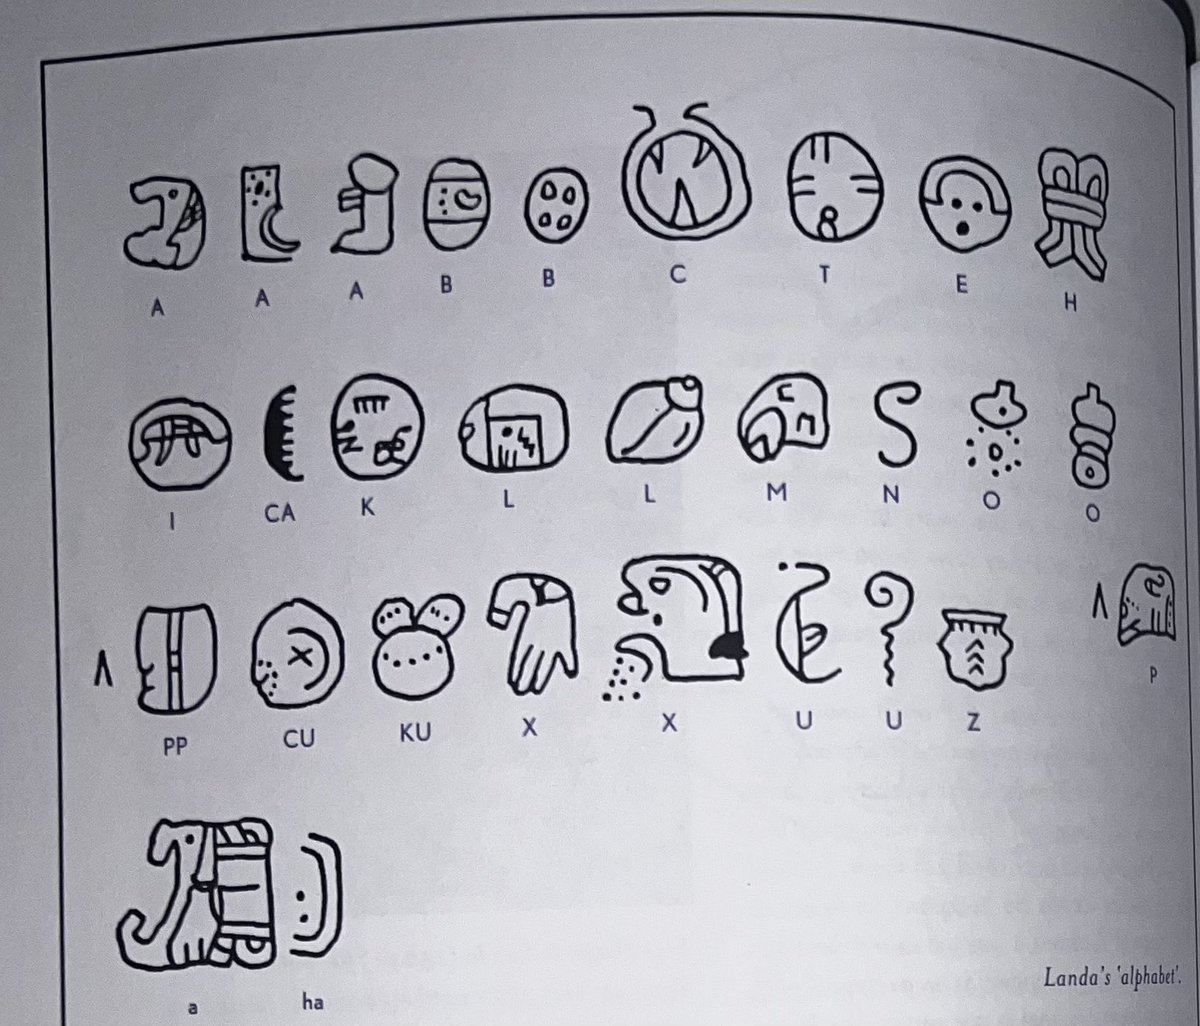 A A A B B C T E H
I CA K L L M N O O
PP CU KU X X U U Z P
a ha
Landa's 'alphabet'.